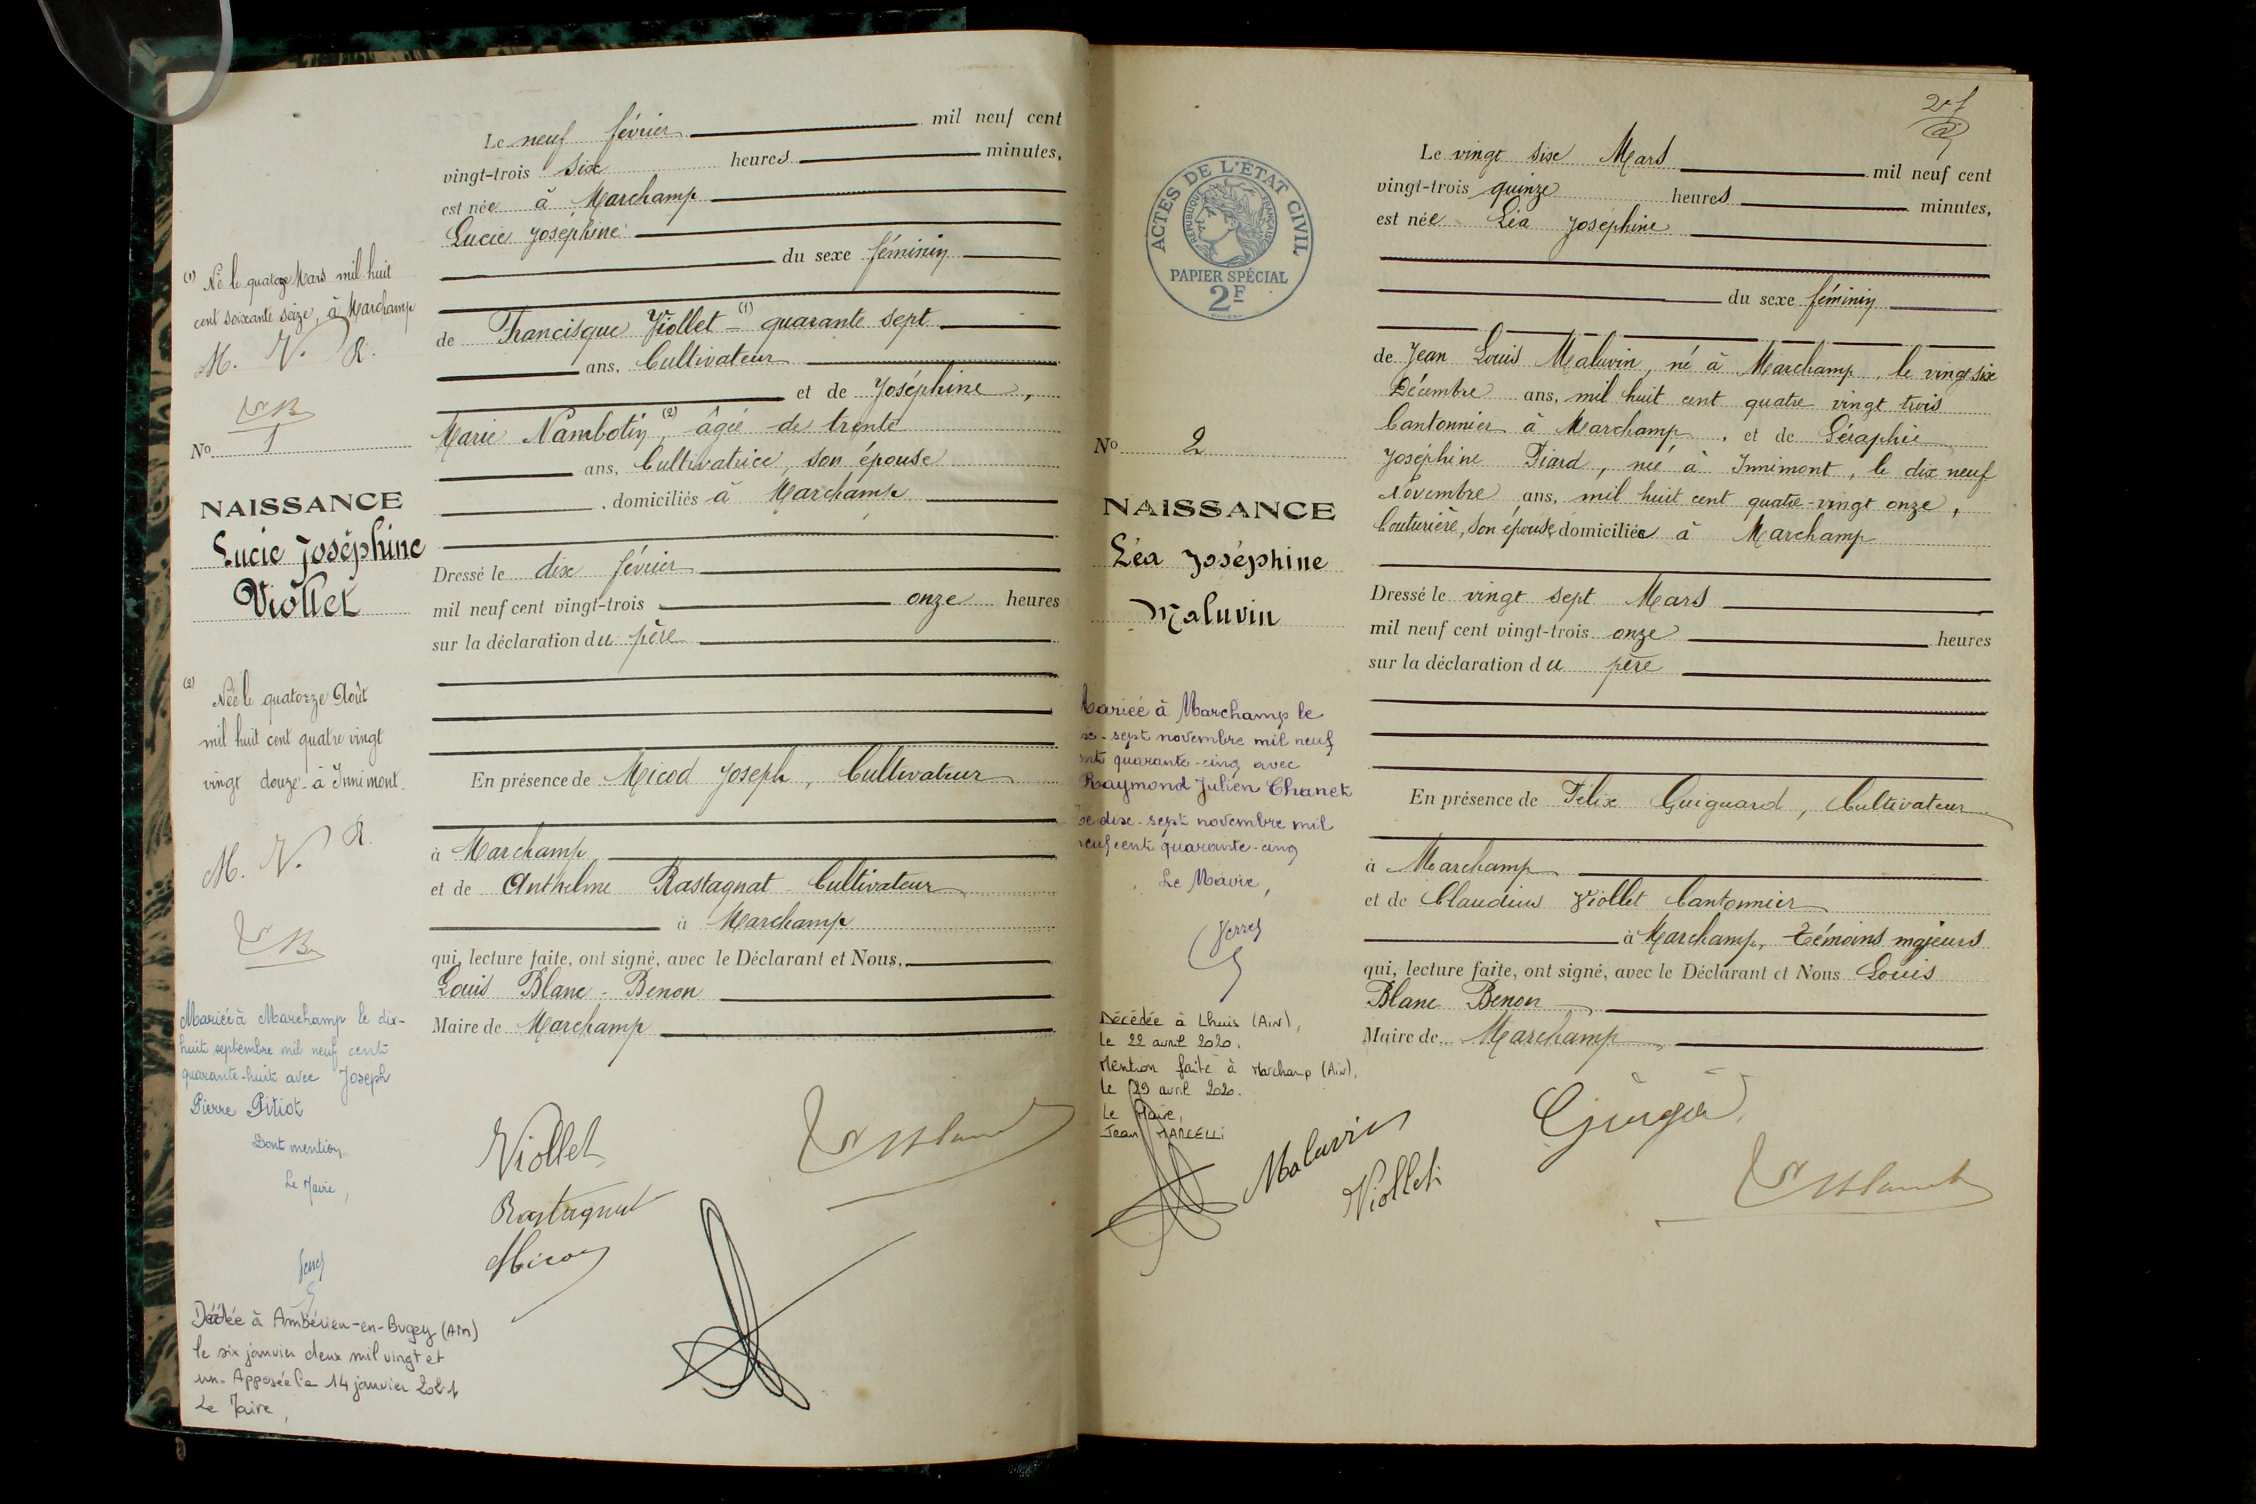 Le neuf février mil neuf cent
vingt-trois six heures minutes,
est née à Marchamp
Lucie Joséphine
du sexe féminin
de Francisque Viollet (1) quarante sept
ans, Cultivateur
et de Joséphine,
Marie Nambotin, (2) âgée de trente
ans, Cultivatrice, son épouse
, domiciliés à Marchamp
Dressé le dix février
mil neuf cent vingt-trois onze heures
sur la déclaration du père
En présence de Micod Joseph, Cultivateur
à Marchamp
et de Anthelme Rastagnat Cultivateur
à Marchamp
qui, lecture faite, ont signé, avec le Déclarant et Nous,
Louis Blanc-Benon
Maire de Marchamp
Viollet
Rastagnat
Micod
(1) Né le quatorze Mars mil huit
cent soixante seize, à Marchamp
M. V. R.
No 1
NAISSANCE
Lucie Joséphine
Viollet
(2) Née le quatorze Août
mil huit cent quatre vingt
vingt douze à Innimont.
M. V. R.
Mariée à Marchamp le dix-
huit septembre mil neuf cent
quarante-huit avec Joseph
Pierre Pitiot
Dont mention
Le Maire,
Décédée à Ambérieu-en-Bugey (Ain)
le six janvier deux mil vingt et
un. Apposée le 14 janvier 2021
Le Maire,
2e f
ACTES DE L'ETAT CIVIL
REPUBLIQUE FRANÇAISE
PAPIER SPÉCIAL
2F
No 2
NAISSANCE
Léa Joséphine
Maluvin
Mariée à Marchamp le
sept novembre mil neuf
quarante-cinq avec
Raymond Julien Chanet
dix-sept novembre mil
neuf cent quarante-cinq
Le Maire,
Décédée à Lhuis (Ain),
le 22 avril 2020.
Mention faite à Marchamp (Ain),
le 29 avril 2020.
Le Maire,
Jean MARCELLI
Le vingt six Mars mil neuf cent
vingt-trois quinze heures minutes,
est née Léa Joséphine
du sexe féminin
de Jean Louis Maluvin, né à Marchamp, le vingt six
Décembre ans, mil huit cent quatre vingt trois
Cantonnier à Marchamp, et de Séraphie
Joséphine Fiard, née à Innimont, le dix neuf
Novembre ans, mil huit cent quatre-vingt onze,
Couturière, son épouse, domiciliés à Marchamp
Dressé le vingt sept Mars
mil neuf cent vingt-trois onze heures
sur la déclaration du père
En présence de Félix Guiguard, Cultivateur
à Marchamp
et de Claudius Viollet Cantonnier
à Marchamp, témoins majeurs
qui, lecture faite, ont signé, avec le Déclarant et Nous Louis
Blanc Benon
Maire de Marchamp
Maluvin
Viollet